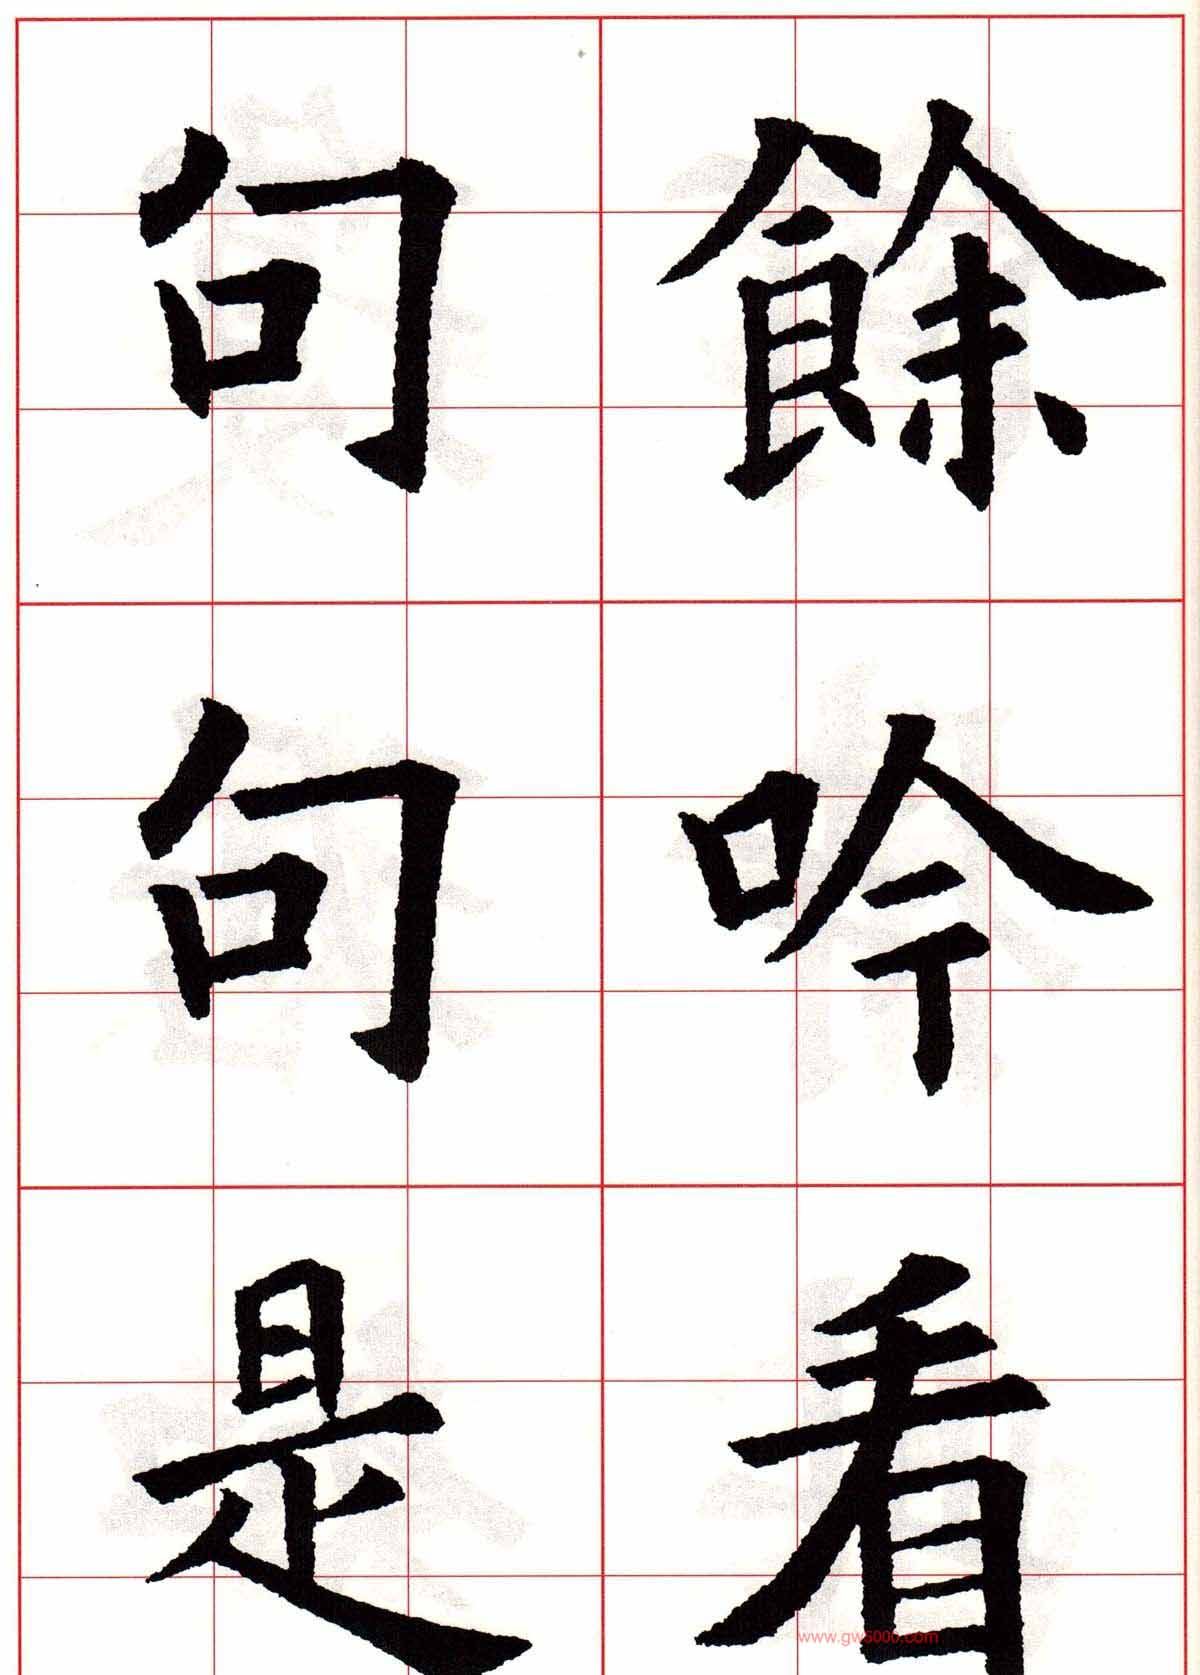 餘吟看
句句是
www.gw5000.com